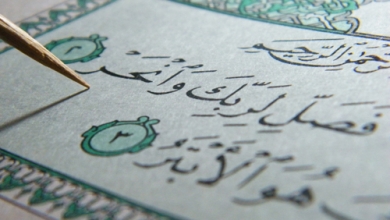 الرَّحِيمِ
فَصَلِّ لِرَبِّكَ وَانْحَرْ ٢
هُوَ الْأَبْتَرُ ٣